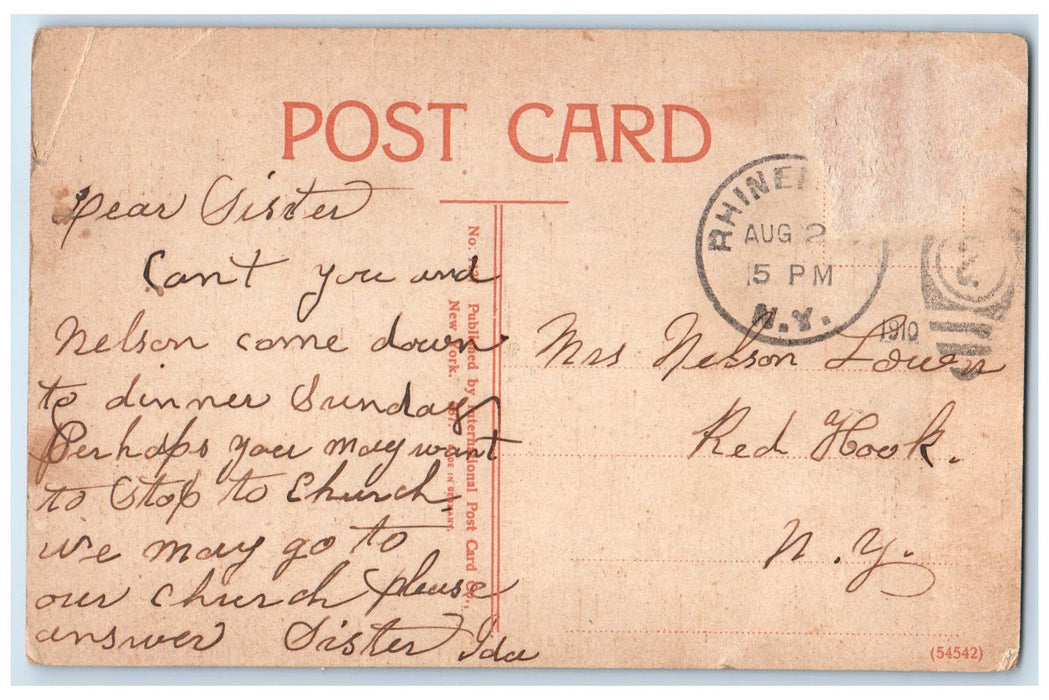 POST CARD
Dear Sister
Can't you and
Nelson come down
to dinner Sunday
Perhaps you may want
to Stop to Church.
we may go to
our church please
answer Sister Ida
No. Published by International Post Card Co.,
New York. MADE IN GERMANY.
RHINE
AUG 2
5 PM
N.Y.
1910
Mrs Nelson Lown
Red Hook.
N. Y.
(54542)